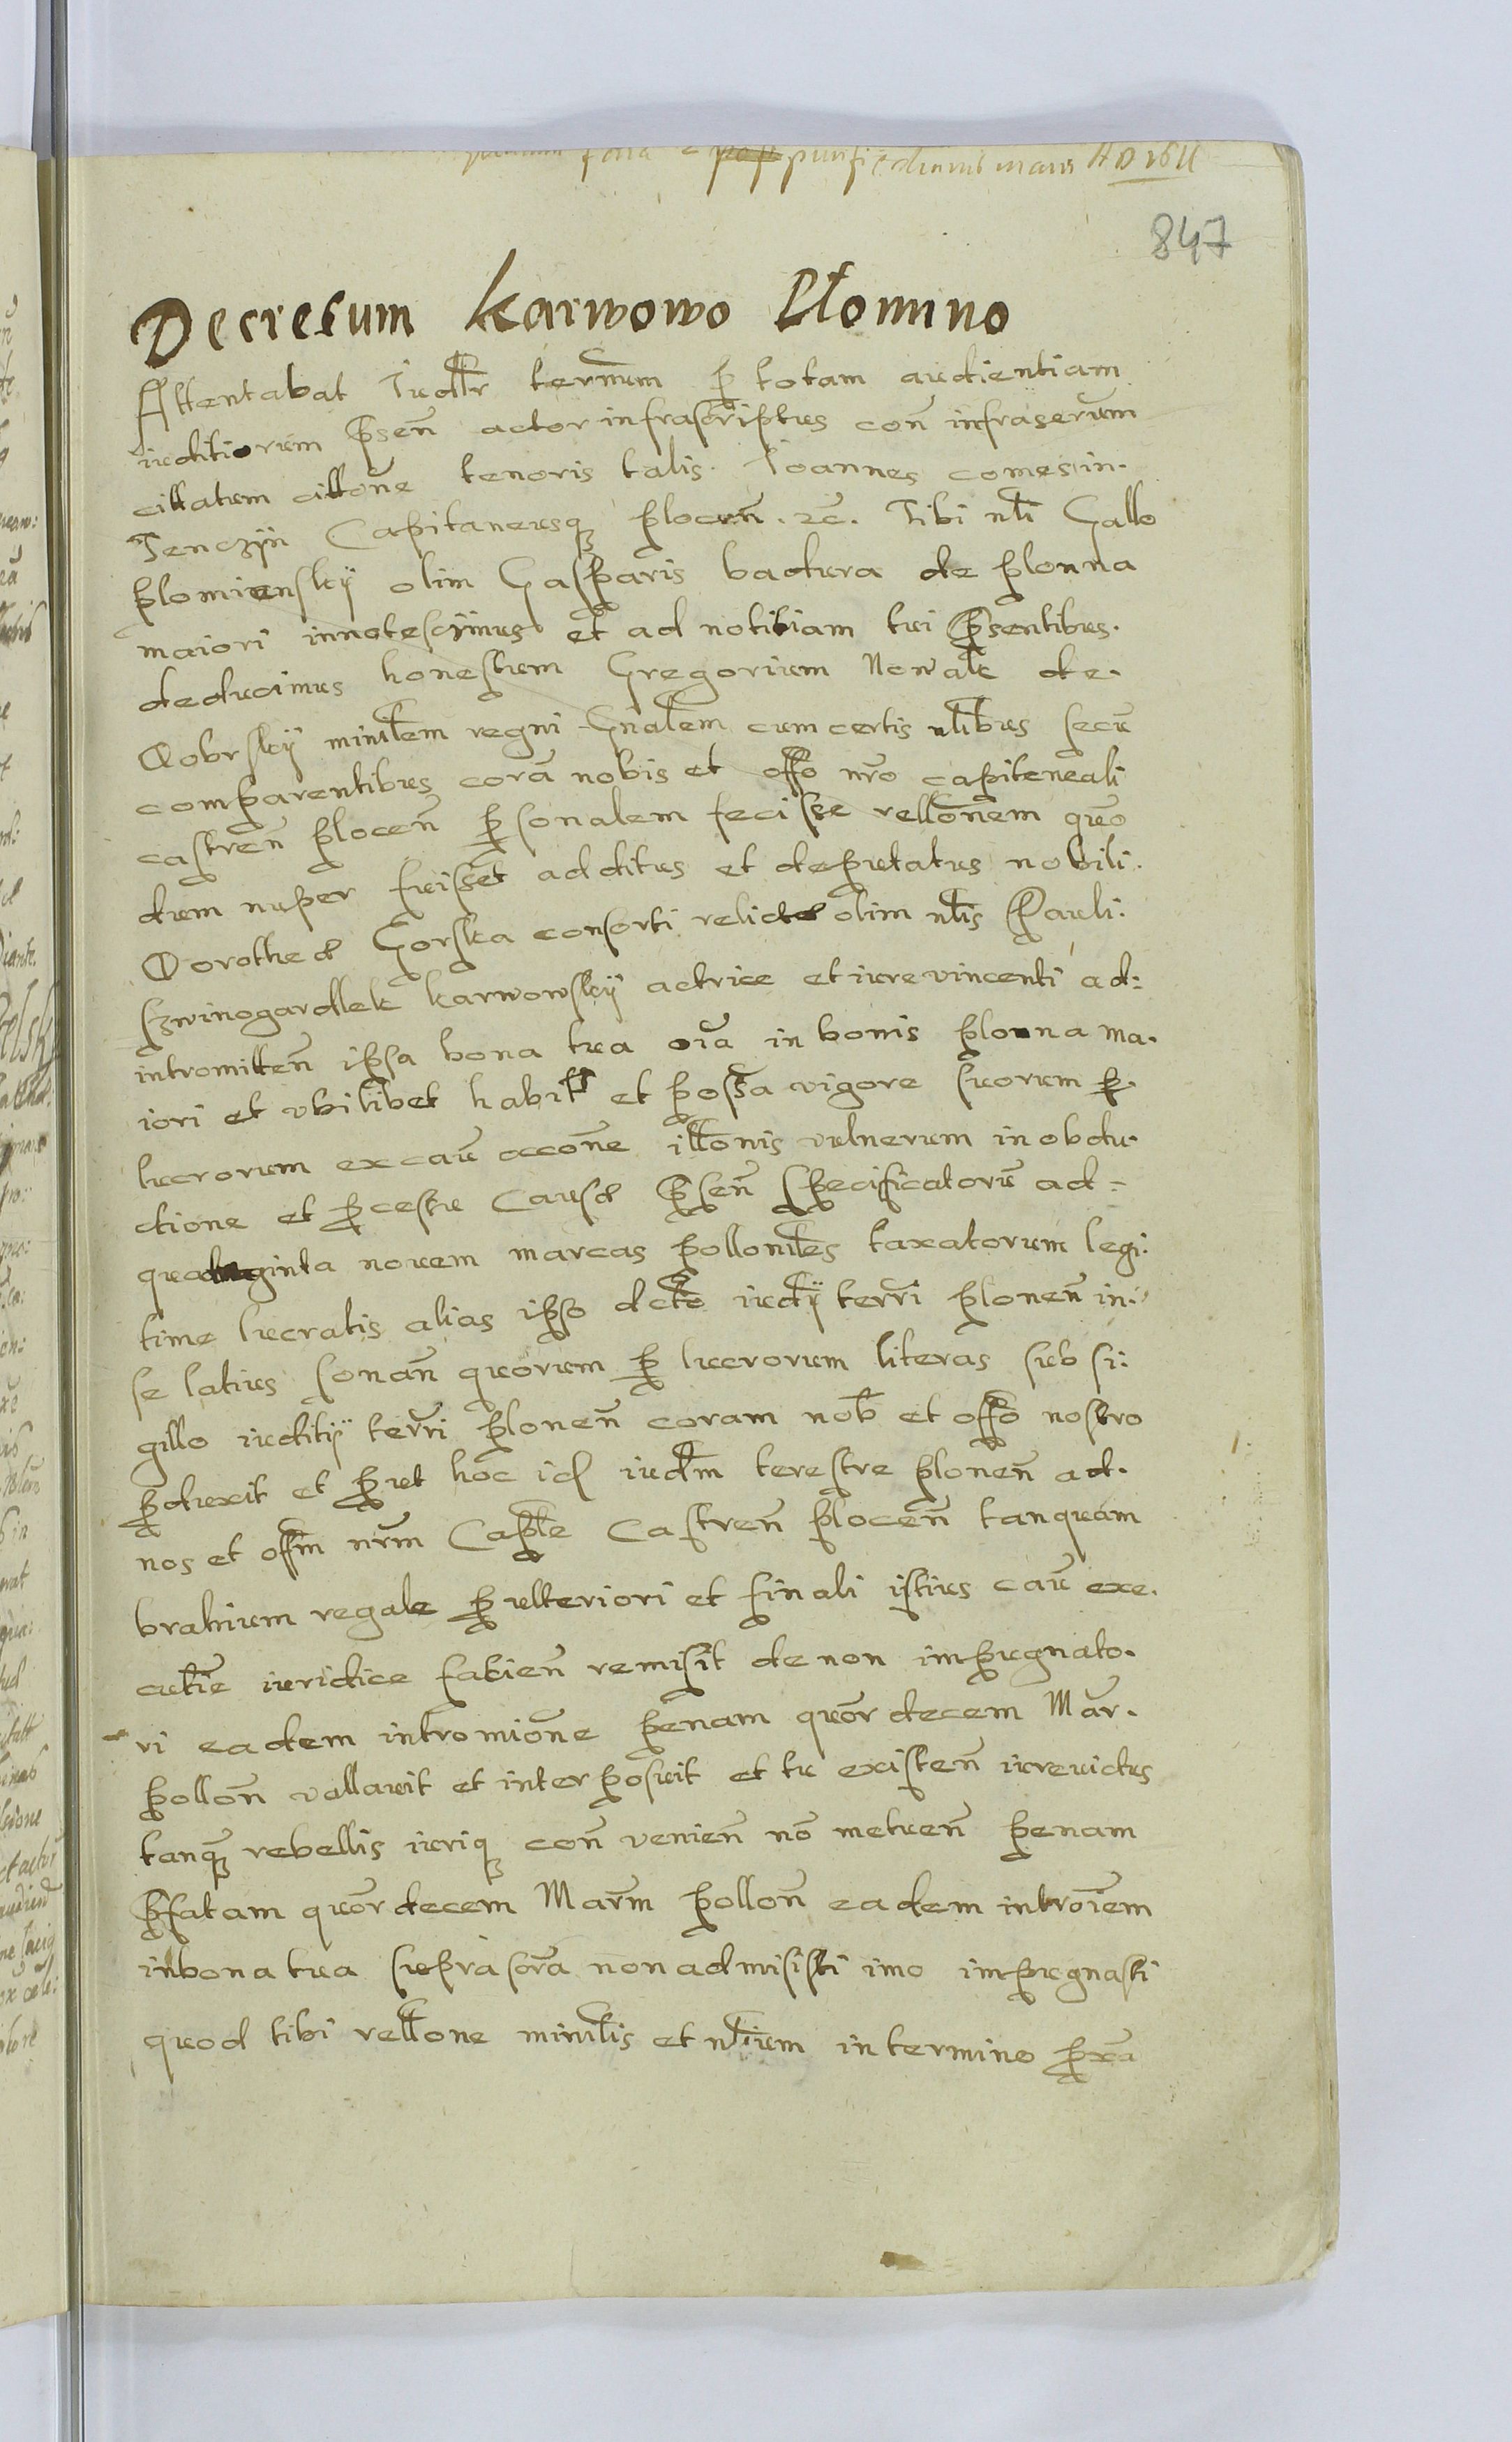 purificationis marie AD 1611
847
Decretum Karwowo Płomino
Attentabat Judlr termum p totam audientiam
iuditiorum psen̄ actor infrascriptus con̄ infraserum
cittatum citt̄one tenoris talis. Joannes comes in.
Tenczÿn Capitaneusq̨ plocen̄. etc̄. Tibi nli Gallo
plomienskÿ olim Gasparis badura de plonna
maiori innotescimus et ad notitiam tui psentibus.
deducimus honestum Gregorium Nowak de.
Dobrskÿ minlem regni Gnalem cum certis nlibus secū
comparentibus corā nobis et offo nr̄o capiteneali
castren̄ plocen̄ psonalem fecisse rell̄onem quo
dum nuper fuisset additus et deputatus nobili.
Dorothea Gorska consorti relicte olim nlis Pauli.
szwinogardlek karwowskÿ actrice et iure vincenti ad:
intromitten̄ ipsa bona tua oīa in bonis plonna ma.
iori et vbilibet habit et possa vigore suorum p.
lucrorum ex caū accōne ill̄onis vulnerum in obdu.
ctione et pcestu causa psen̄ specificatorū ad=
quadraginta nouem marcas pollonles taxatorum legi.
time lucratis alias ipso dcto iudÿ terri plonen̄ in.
se latius sonan̄ quorum p lucrorum literas sub si.
gillo iuditÿ terri plonen̄ coram nob et offo nostro
pduxit et put hoc id iudm terestre plonen̄ ad.
nos et offm nrm Caple Castren̄ plocen̄ tanquam
brahium regale p ulteriori et finali istius caū exe.
cutīe iuridice facien̄ remisit de non impugnato.
ri eadem intromīone penam quor decem Mar.
pollon̄ vallavit et interposuit et tu existen̄ iurevictus
tanq̨ rebellis iuriq̨ con̄ venien̄ nō metuen̄ penam
pfatam quor decem Marm pollon̄ eadem introīem
in bona tua supra sora non admisisti imo impugnasti
quod tibi rell̄one minlis et nlium in termino pxa